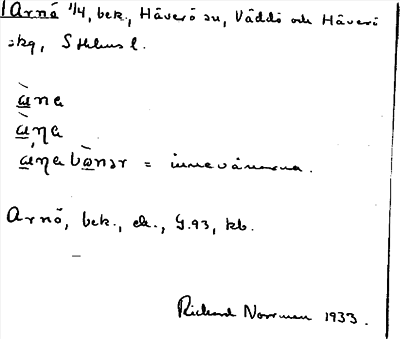 Arnö 1/4, bek., Häverö sn, Väddö och Häverö
skg, Sthlms l.
à̲na
à̲ŋa
a̲ŋabo̲nər = innevånarna.
Arnö, bek., ek., G.93, kb.
Richard Norrman 1933.